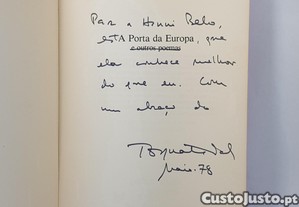 Para Henri Belo,
esta A Porta da Europa, que
e outros poemas
ela conhece melhor
do que eu. Com
um abraço do
Maio. 78
CustoJusto.pt